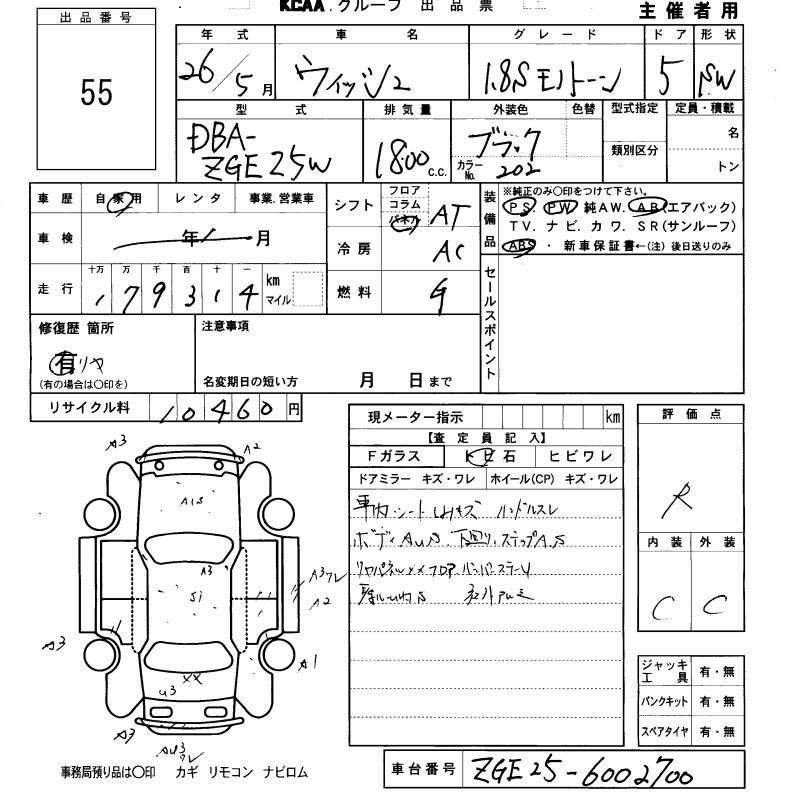 KCAA.グループ 出品票
主催者用
出品番号
55
年式 車名 グレード ドア 形状
26/5月 ウィッシュ 1.8S モノトーン 5 SW
型式 排気量 外装色 色替 型式指定 定員・積載
DBA-ZGE25W 1800c.c. ブラック 名
カラーNo. 202 類別区分 トン
車歴 自家用 レンタ 事業.営業車
シフト フロア コラム パネル AT
装備品 ※純正のみ○印をつけて下さい。
PS PW 純AW. AB(エアバック)
TV. ナビ. カワ. SR(サンルーフ)
ABS ・ 新車保証書←(注) 後日送りのみ
車検 年 月
冷房 AC
走行 十万 万 千 百 十 一 km マイル
179314
燃料 G
セールスポイント
修復歴 箇所 注意事項
有 リヤ
(有の場合は○印を)
名変期日の短い方 月 日まで
リサイクル料 10460円
現メーター指示 km
【査定員記入】
Fガラス トビ石 ヒビワレ
ドアミラー キズ・ワレ ホイール(CP) キズ・ワレ
車内シート ハンドルスレ
ボディAUS 下回り.ステップA.S
リヤパネルXXフロア バンパーステー
評価点
R
内装 外装
C C
A3
A2
A1S
A3
A3ワレ
S1
A2
A3
A1
XX
U3
A3
AU3
ワレ
ジャッキ工具 有・無
パンクキット 有・無
スペアタイヤ 有・無
事務局預り品は○印 カギ リモコン ナビロム
車台番号 ZGE25-6002700